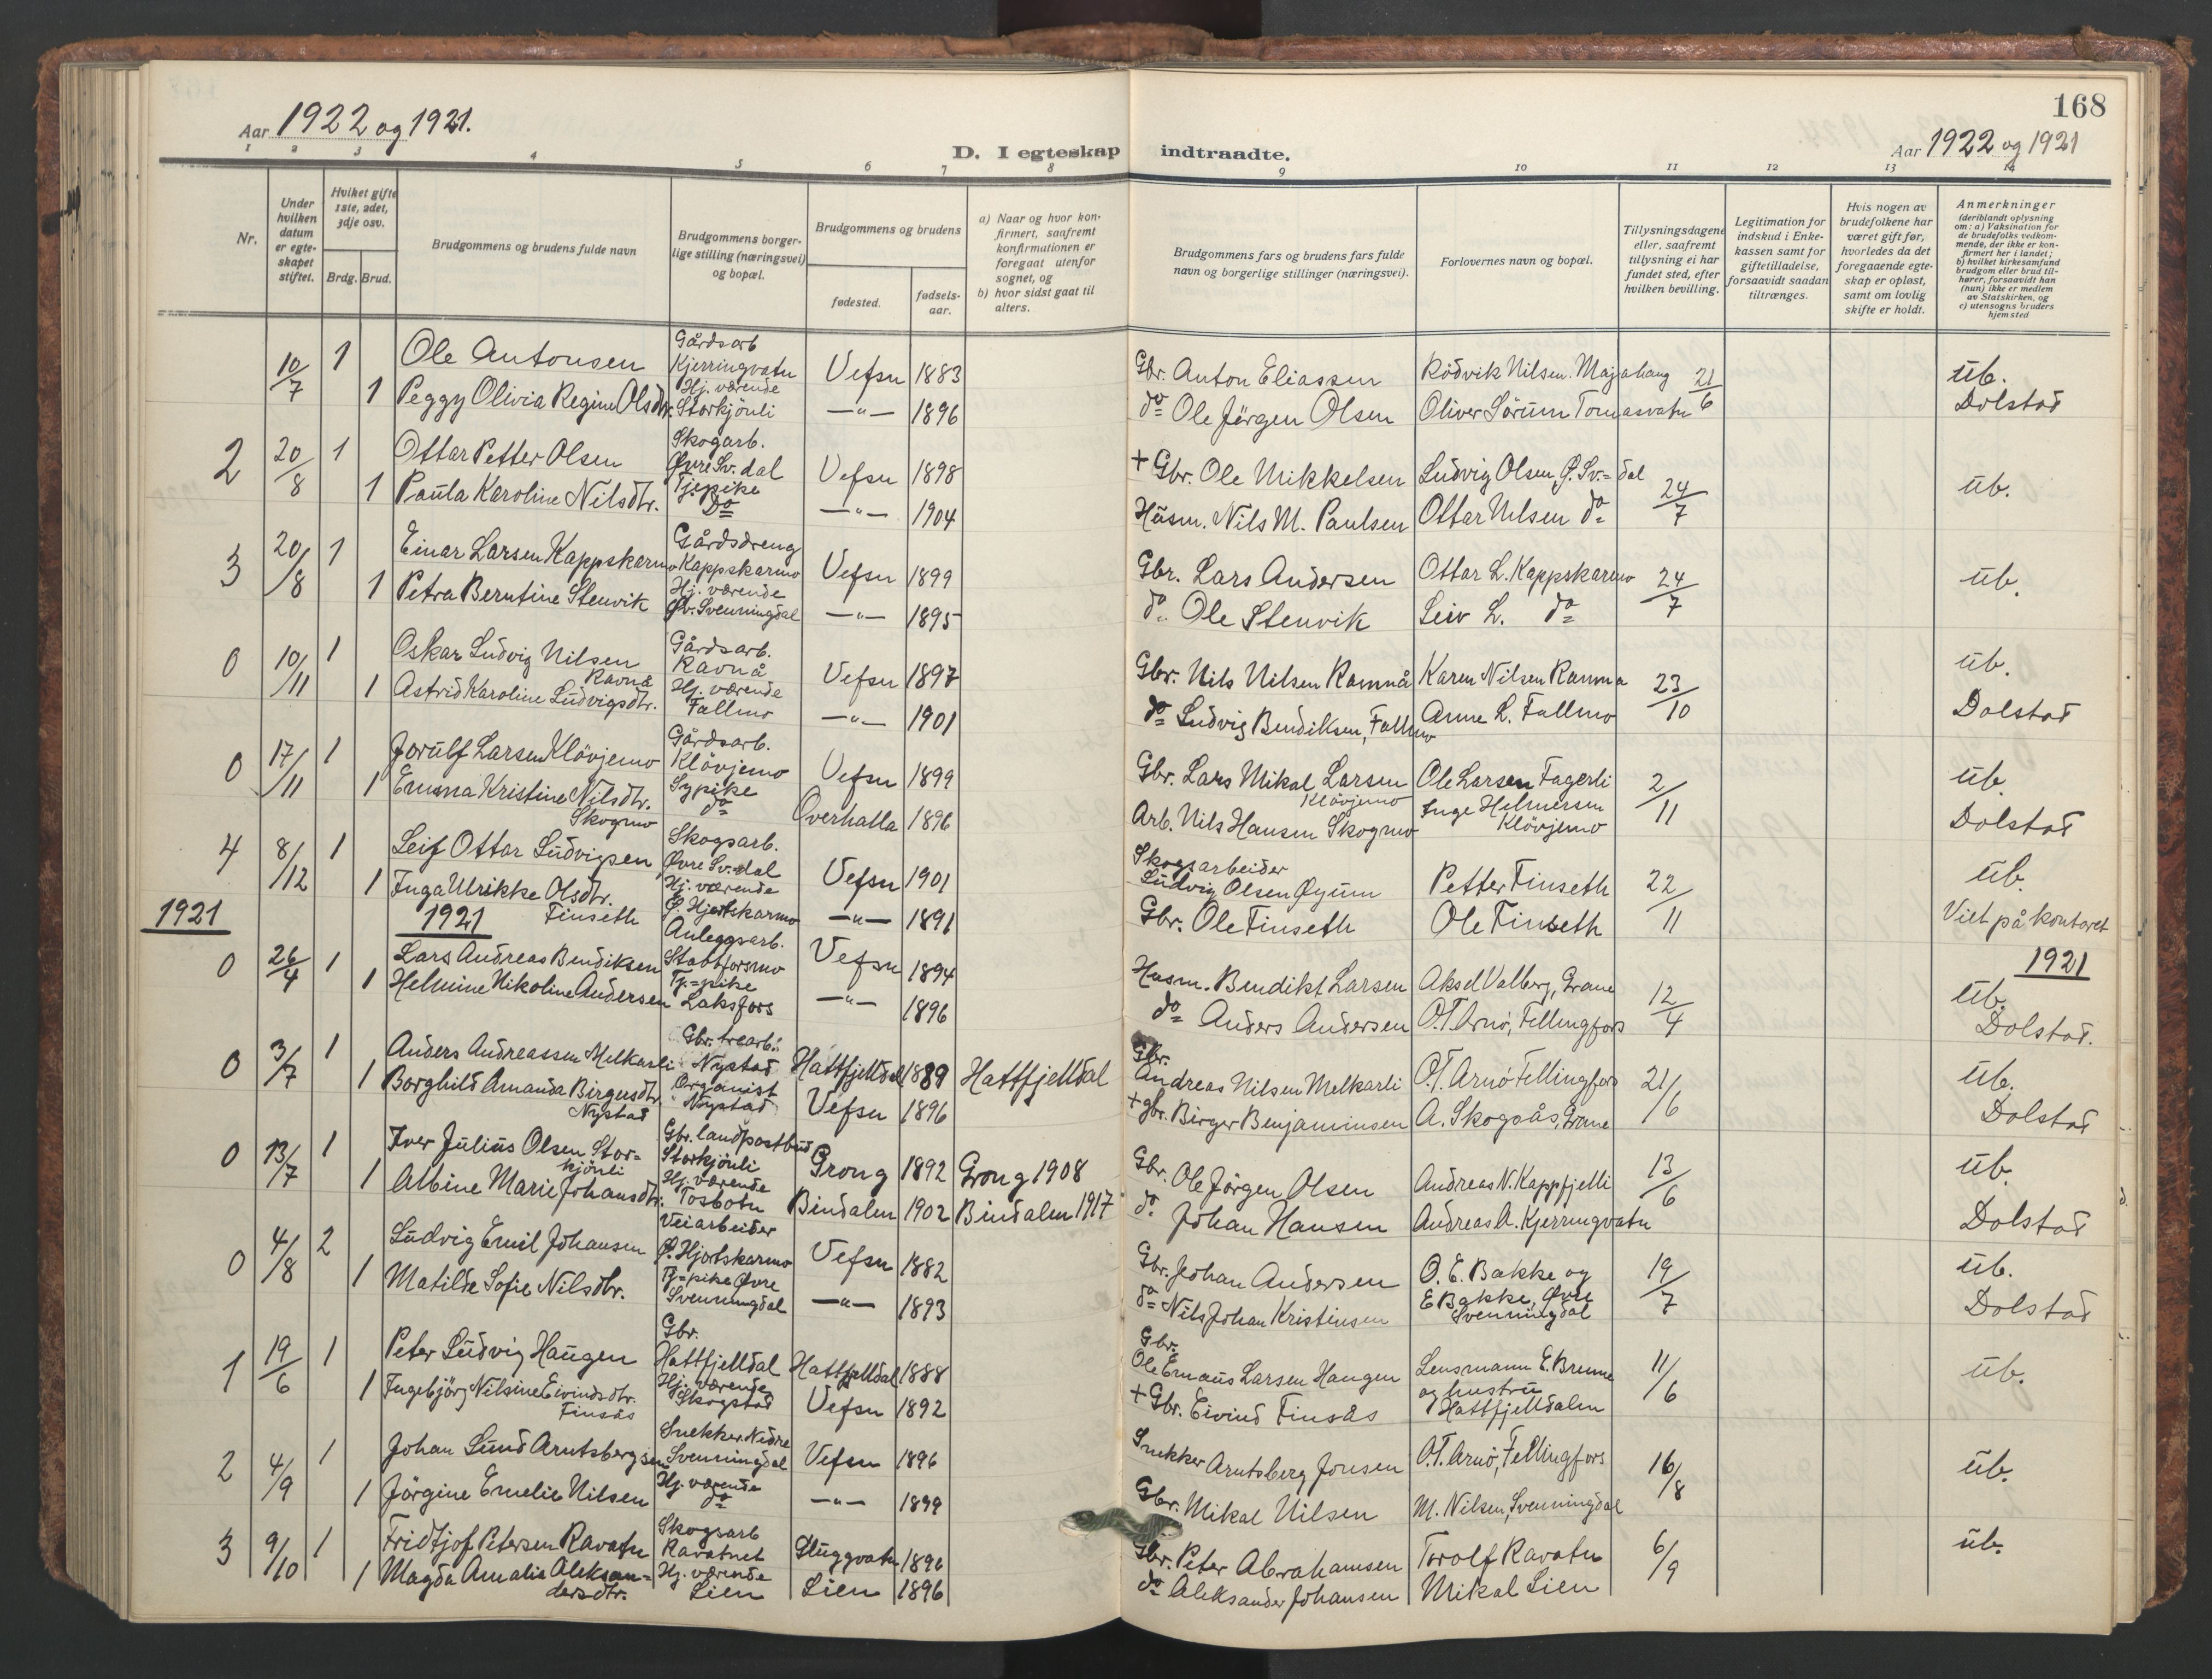 168
Aar 1922 og 1921.
Aar 1922 og 1921
D. I egteskap indtraadte.
1 2 3 4 5 6 7 8 9 10 11 12 13 14
Nr.
Under hvilken datum er egte-skapet stiftet.
Hvilket gifte 1ste, 2det, 3dje osv.
Brdg. Brud.
Brudgommens og brudens fulde navn
Brudgommens borger-lige stilling (næringsvei) og bopæl.
Brudgommens og brudens
fødested.
fødsels-aar.
a) Naar og hvor kon-firmert, saafremt konfirmationen er foregaat utenfor sognet, og
b) hvor sidst gaat til alters.
Brudgommens fars og brudens fars fulde navn og borgerlige stillinger (næringsvei).
Forlovernes navn og bopæl.
Tillysningsdagene eller, saafremt tillysning ei har fundet sted, efter hvilken bevilling.
Legitimation for indskud i Enke-kassen samt for giftetilladelse, forsaavidt saadan tiltrænges.
Hvis nogen av brudefolkene har været gift før, hvorledes da det foregaaende egte-skap er opløst, samt om lovlig skifte er holdt.
Anmerkninger
(deriblandt oplysning om: a) Vaksination for de brudefolks vedkom-mende, der ikke er kon-firmert her i landet; b) hvilket kirkesamfund brudgom eller brud til-hører, forsaavidt han (hun) ikke er medlem av Statskirken, og c) utensogns bruders hjemsted
10/7 1 Ole Antonsen Gårdsarb Kjerringvatn Vefsn 1883 Gbr. Anton Eliassen Rödvik Nilsen. Majahaug 21/6 üb.
1 Peggy Olivia Regine Olsdtr. Hj. værende Storkjönli —"— 1896 do Ole Jörgen Olsen Oliver Sörum Tomasvatn Dolstad
2 20/8 1 Ottar Petter Olsen Skogarb. Øvre Sv.dal Vefsn 1898 + Gbr. Ole Mikkelsen Ludvig Olsen, Ø. Sv.=dal 24/7 üb.
1 Paula Karoline Nilsdtr. Tj.pike Do —"— 1904 Husm. Nils M. Paulsen Ottar Nilsen do
3 20/8 1 Einar Larsen Kappskarmo Gårdsdreng Kappskarmo Vefsn 1899 Gbr. Lars Andersen Ottar L. Kappskarmo 24/7 üb.
1 Petra Berntine Stenvik Hj. værende Øv. Svenningdal —"— 1895 do Ole Stenvik Leiv L. do
0 10/11 1 Oskar Ludvig Nilsen Ravnå Gårdsarb. Ravnå Vefsn 1897 Gbr. Nils Nilsen Ramnå Karen Nilsen Ramna 23/10 üb.
1 Astrid Karoline Ludvigsdtr. Hj. værende Fallmo —"— 1901 do Ludvig Bendiksen, Fallmo Anne L. Fallmo Dolstad
0 17/11 1 Jorulf Larsen Klövjemo Gårdsarb. Klövjemo Vefsn 1899 Gbr. Lars Mikal Larsen Klövjemo Ole Larsen Fagerli 2/11 üb.
1 Emma Kristine Nilsdtr. Skogmo Sypike do Overhalla 1896 Arb. Nils Hansen Skogmo Inge Helmersen Klövjemo Dolstad
4 8/12 1 Leif Ottar Ludvigsen Skogsarb. Øvre Sv.dal Vefsn 1901 Skogsarbeider Ludvig Olsen Øyum Petter Finseth 22/11 üb.
1 Inga Ulrikke Olsdtr. Finseth Hj. værende Ø. Hjortskarmo —"— 1891 Gbr. Ole Finseth Ole Finseth Viet på kontoret
1921 1921 1921
0 26/4 1 Lars Andreas Bendiksen Anleggsarb. Stabbforsmo Vefsn 1894 Husm. Bendikt Larsen Aksel Valberg, Grane 12/4 üb.
1 Helmine Nikoline Andersen Tj.=pike Laksfors —"— 1896 do Anders Andersen O.T. Arnö, Fellingfors Dolstad.
0 3/7 1 Anders Andreassen Melkarli Gbr. trearb. Nystad Hattfjelldal 1889 Hattfjelldal Gbr. Andreas Nilsen Melkarli O.T. Arnö Fellingfors 21/6 üb.
1 Borghild Amanda Birgersdtr. Nystad Organist Nystad Vefsn 1896 + gbr. Birger Benjaminsen A. Skogsås, Grane Dolstad
0 13/7 1 Iver Julius Olsen Stor-kjönli Gbr. landpostbud Storkjönli Grong 1892 Grong 1908 Gbr. Ole Jörgen Olsen Andreas N. Kappfjelli 13/6 üb.
1 Albine Marie Johansdtr. Hj. værende Tosbotn Bindalen 1902 Bindalen 1917 do Johan Hansen Andreas A. Kjerringvatn Dolstad
0 4/8 2 Ludvig Emil Johansen Veiarbeider Ø. Hjortskarmo Vefsn 1882 Gbr. Johan Andersen O. E. Bakke og 19/7 üb.
1 Matilde Sofie Nilsdtr. Tj=pike Øvre Svenningdal —"— 1893 do Nils Johan Kristinsen E Bakke, Øvre Svenningdal Dolstad
1 19/6 1 Peter Ludvig Haugen Gbr. Hattfjelldal Hattfjelldal 1888 Gbr. Ole Emaus Larsen Haugen Lensmann E. Brenne 11/6 üb.
1 Ingebjörg Nilsine Eivindsdtr. Finsås Hj. værende Skogstad Vefsn 1892 + Gbr. Eivind Finsås og hustru Hattfjelldalen
2 4/9 1 Johan Lund Arntsbergsen Snekker Nedre Svenningdal Vefsn 1896 Snekker Arntsberg Jonsen O.T. Arnö, Fellingfors 16/8 üb.
1 Jörgine Emelie Nilsen Hj. værende do —"— 1899 Gbr. Mikal Nilsen M. Nilsen, Svenningdal
3 9/10 1 Fridtjof Petersen Ravatn Skogsarb Ravatnet Gluggvatn 1896 Gbr. Peter Abrahamsen Torolf Ravatn 6/9 üb.
1 Magda Amalie Aleksan=dersdtr. Hj. værende Lien Lien 1896 do Aleksander Johansen Mikal Lien